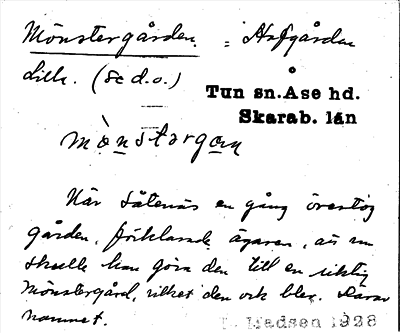 Mönstergården = Hofgården
Lilla. (Se d.o.)
Tun sn. Åse hd.
Skarab. län
mònstərgɑn
När Såtenäs en gång övertog
gården, förklarade ägaren, att nu
skulle han göra den till en riktig
Mönstergård, vilket den ock blev. Därav
namnet.
Madsen 1928